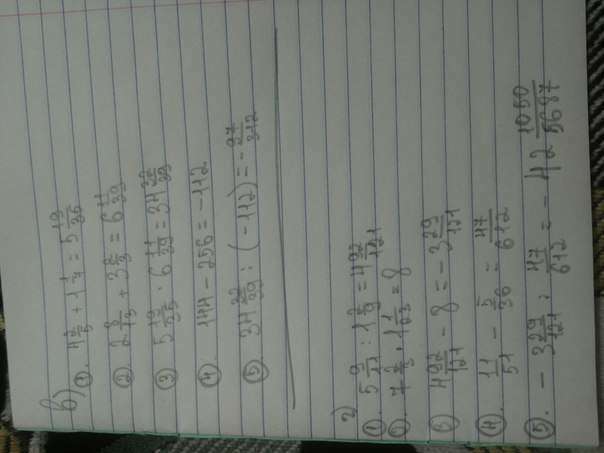 в)
① 4 2/5 + 1 1/7 = 5 19/35
② 2 8/13 + 3 2/3 = 6 11/39
③ 5 19/35 · 6 11/39 = 34 32/39
④ 144 - 256 = -112
⑤ 34 32/39 : (-112) = - 97/312
г)
① 5 9/11 : 1 2/9 = 4 92/121
② 7 7/8 · 1 1/63 = 8
③ 4 92/121 - 8 = -3 29/121
④ 11/51 - 5/36 = 47/612
⑤. -3 29/121 : 47/612 = -42 1050/5687